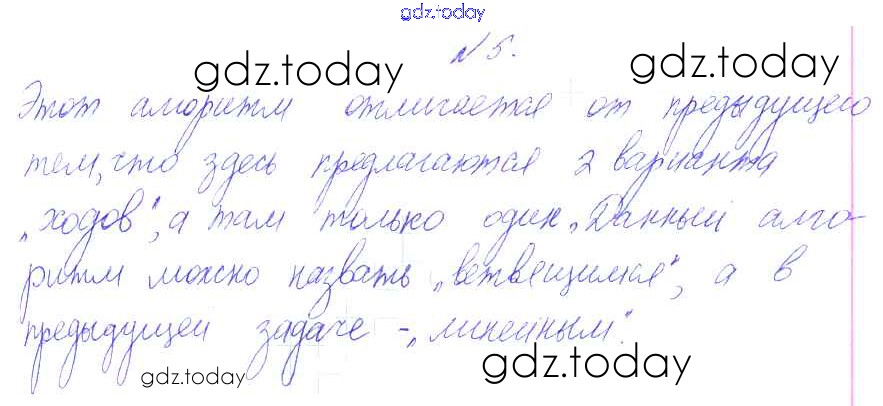 gdz.today
N 5.
gdz.today gdz.today
Этот алгоритм отличается от предыдущего
тем, что здесь предлагаются 2 варианта
„ходов“, а там только один. Данный алго-
ритм можно назвать „ветвящимся“, а в
предыдущей задаче - „линейным“.
gdz.today gdz.today